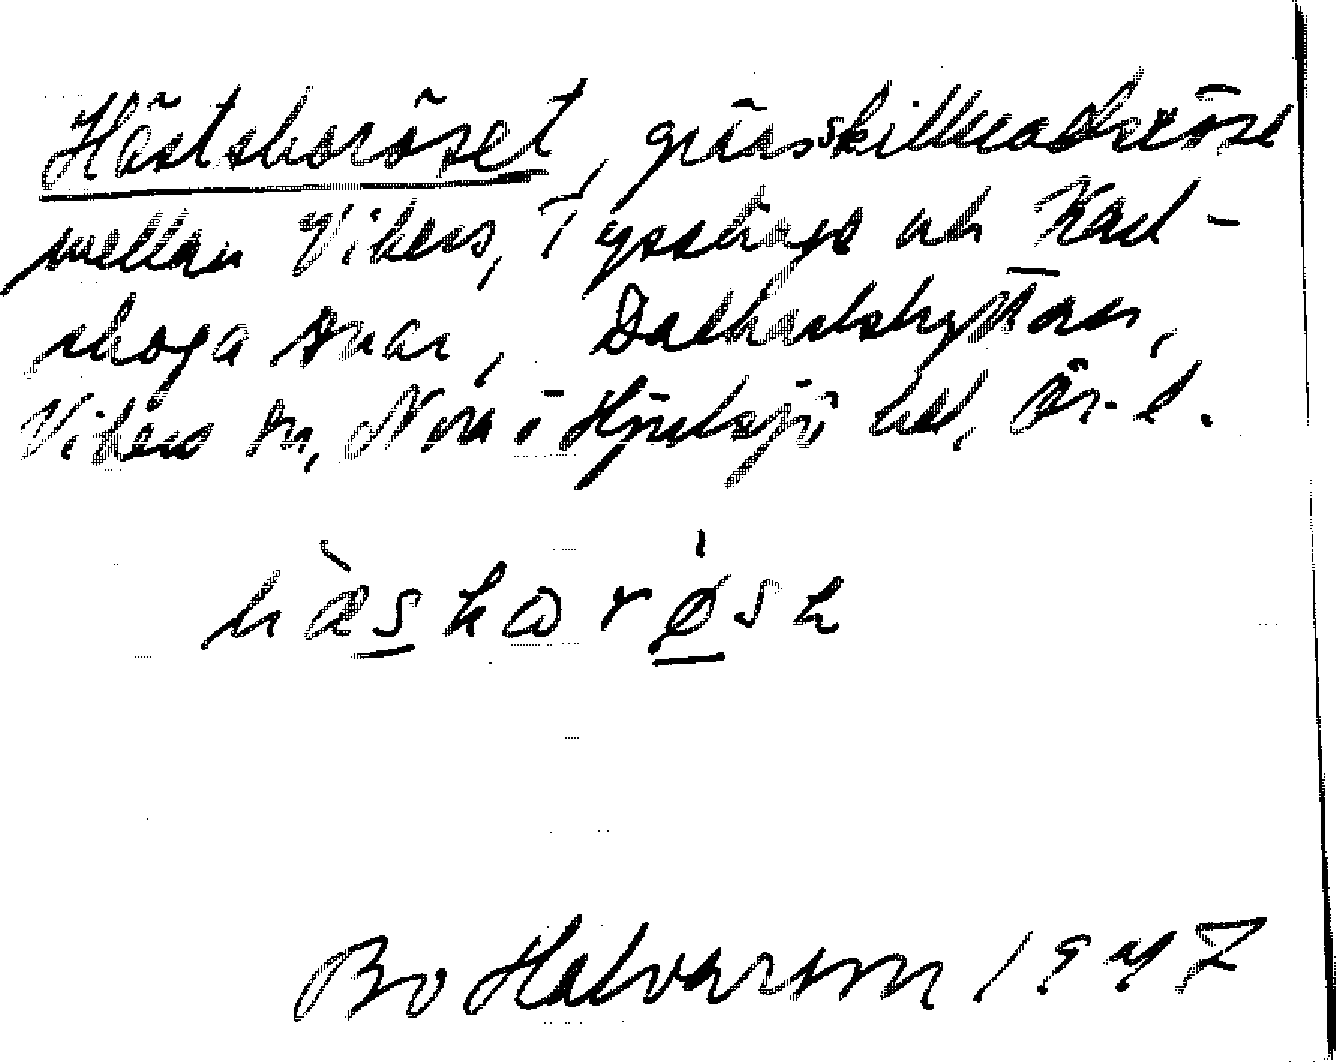 Hästskoröset, gränsskillnadsröse
mellan Vikers, Tysslinge och Karl-
skoga snar, Dalkarlshyttan,
Vikers sn, Nora o Hjulsjö hd, Ör. l.
hæskorøsə
Bo Halvarson 1947